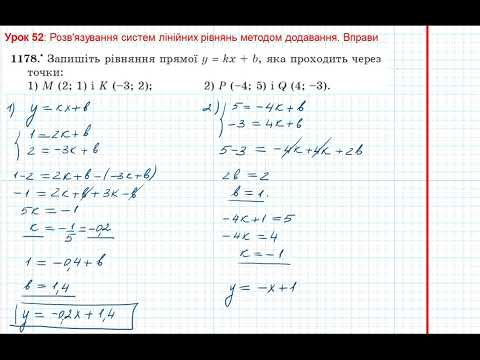 Урок 52: Розв'язування систем лінійних рівнянь методом додавання. Вправи
1178.• Запишіть рівняння прямої y = kx + b, яка проходить через
точки:
1) M (2; 1) і K (−3; 2);
2) P (−4; 5) і Q (4; −3).
1) y = kx + b
{ 1 = 2k + b
2 = −3k + b
1−2 = 2k + b − (−3k + b)
−1 = 2k + b + 3k − b
5k = −1
k = −1/5 = −0,2
1 = −0,4 + b
b = 1,4
y = −0,2x + 1,4
2) { 5 = −4k + b
−3 = 4k + b
5−3 = −4k + 4k + 2b
2b = 2
b = 1.
−4k + 1 = 5
−4k = 4
k = −1
y = −x + 1